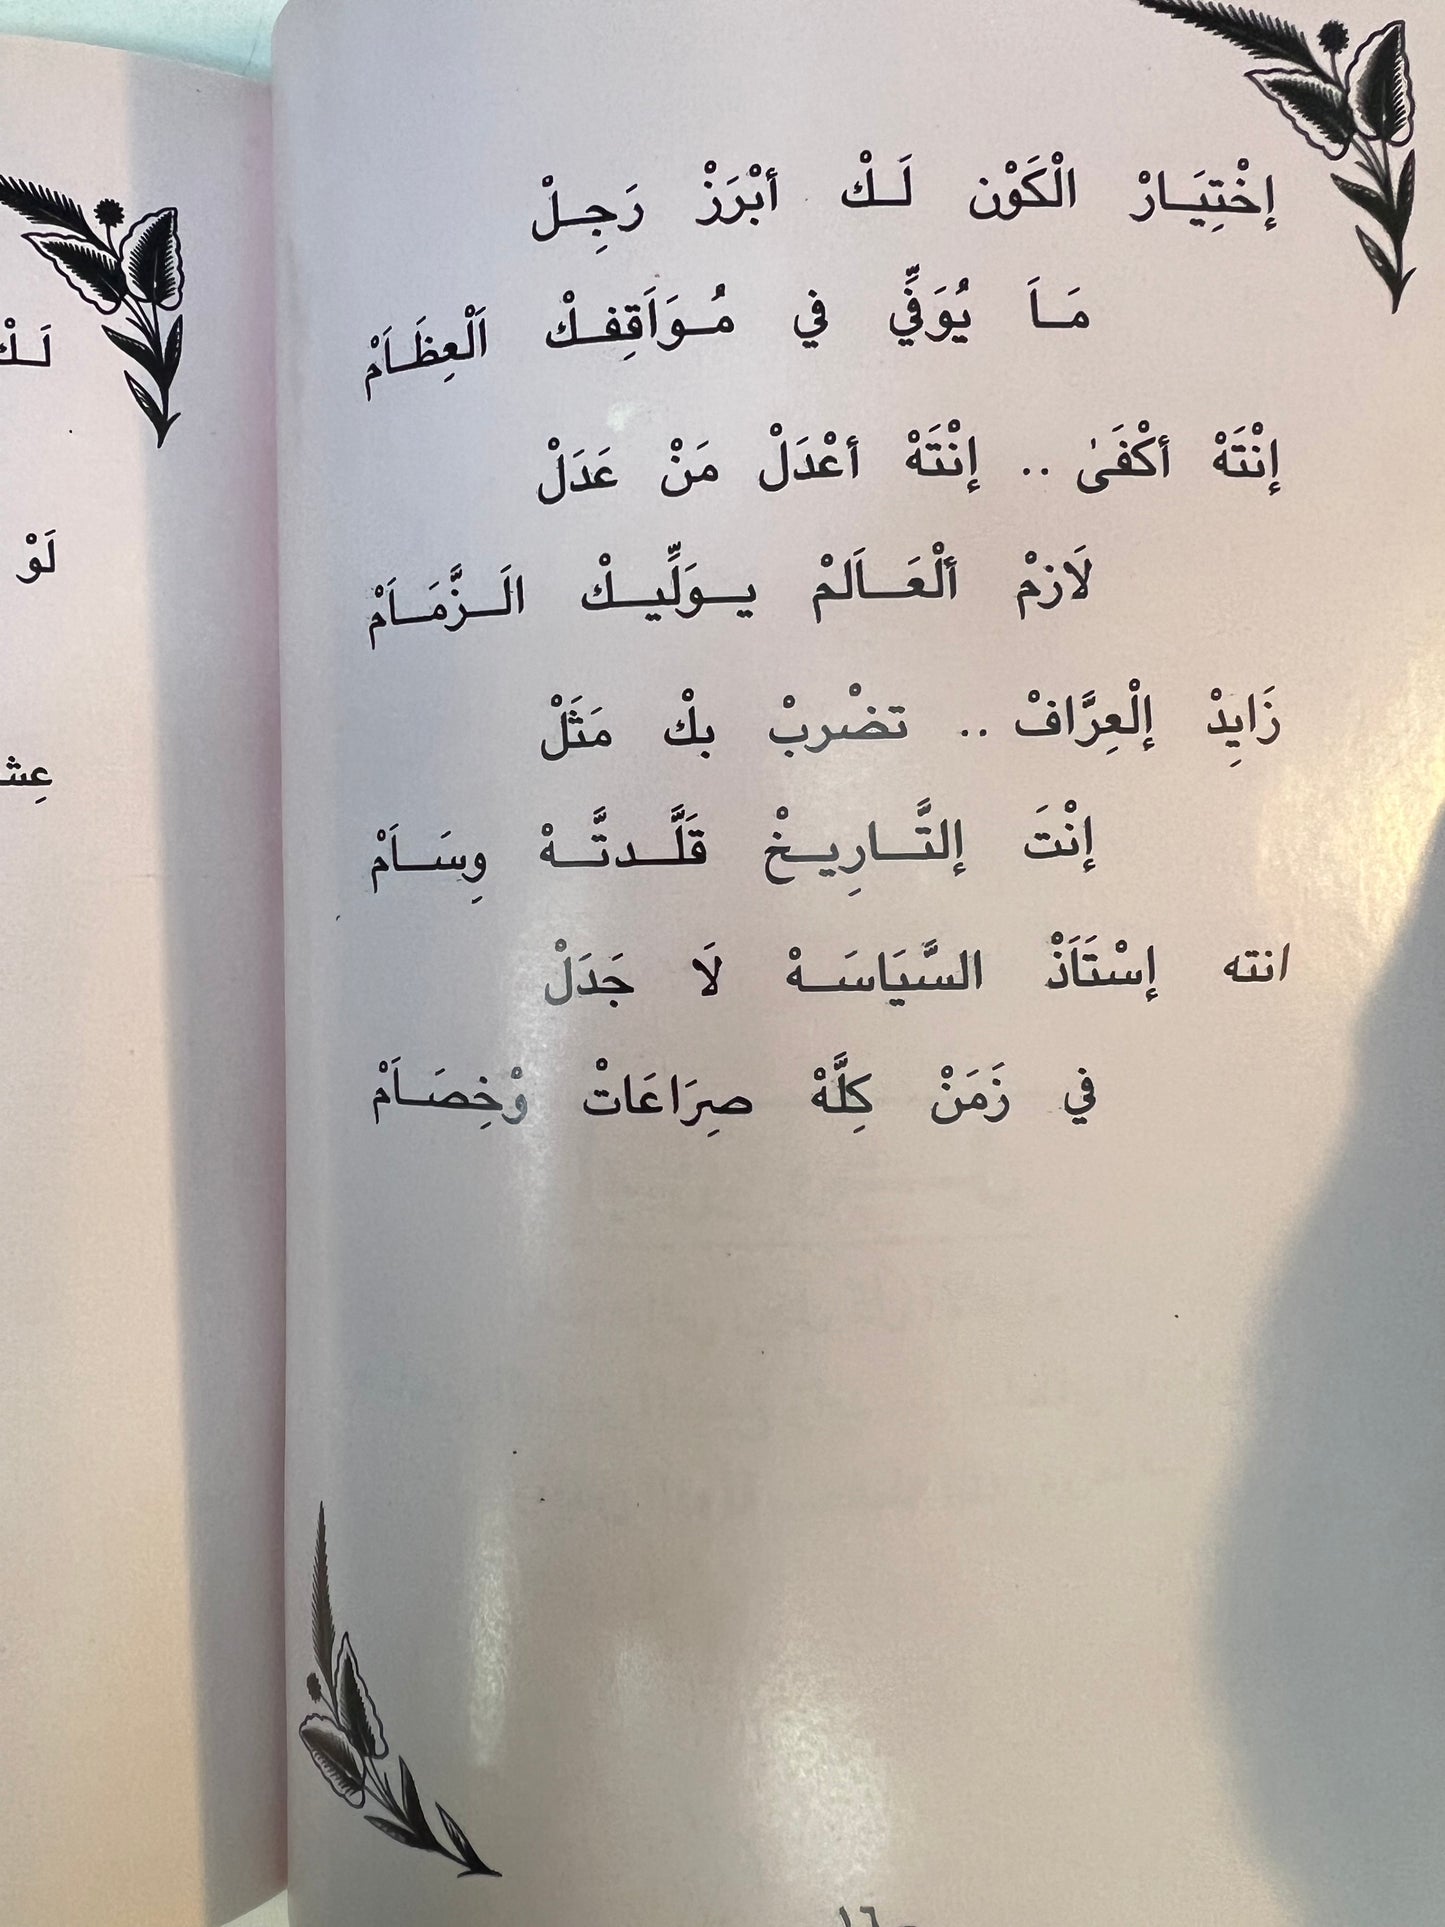 إخْتِيَـارْ الْكَوْن لَـكْ أبْرَزْ رَجِـلْ
مَـاَ يُوَفِّي في مُـوَاَقِفـكْ اَلْعِظَـاَمْ
إنْتَهْ أكْفَىٰ .. إنْتَهْ أعْدَلْ مَنْ عَدَلْ
لَازمْ ألْعَـاَلمْ يـوَلِّيـكْ الَـزَّمَـاَمْ
زَايِدْ إلْعِرَّافْ .. تضْربْ بكْ مَثَلْ
إنْتَ إلتَّـارِيـخْ قَلَّـدتَّـهْ وِسَـاَمْ
انته إسْتَاَذْ السَّيَاسَـهْ لَا جَدَلْ
في زَمَنْ كِلَّهْ صِرَاعَاتْ وْخِصَـاَمْ
لَـكْ
لَوْ
١٦